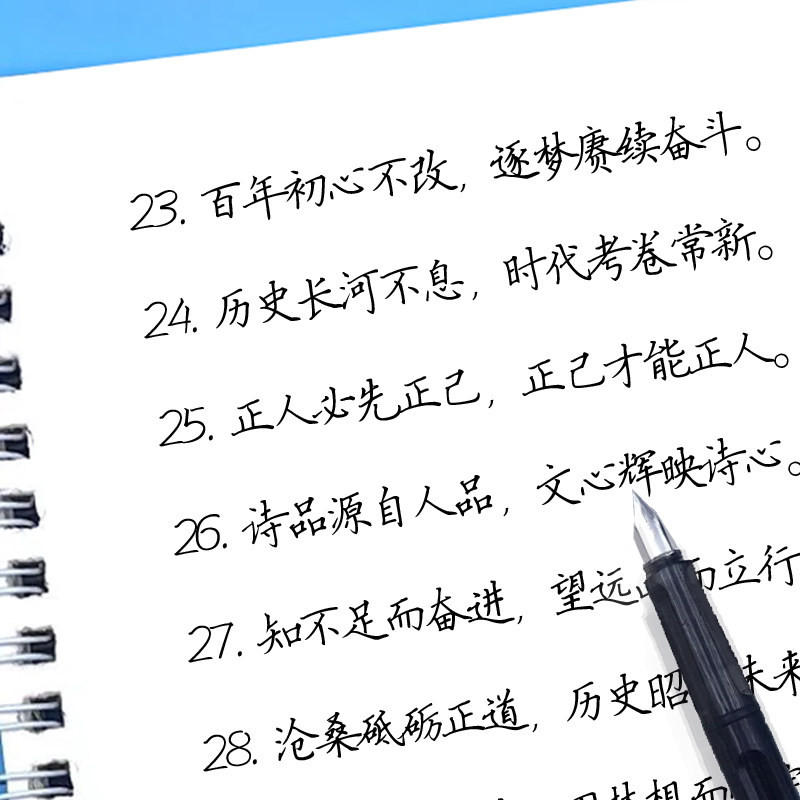 23. 百年初心不改，逐梦赓续奋斗。
24. 历史长河不息，时代考卷常新。
25. 正人必先正己，正己才能正人。
26. 诗品源自人品，文心辉映诗心。
27. 知不足而奋进，望远 而立行
28. 沧桑砥砺正道，历史昭 未来
想而